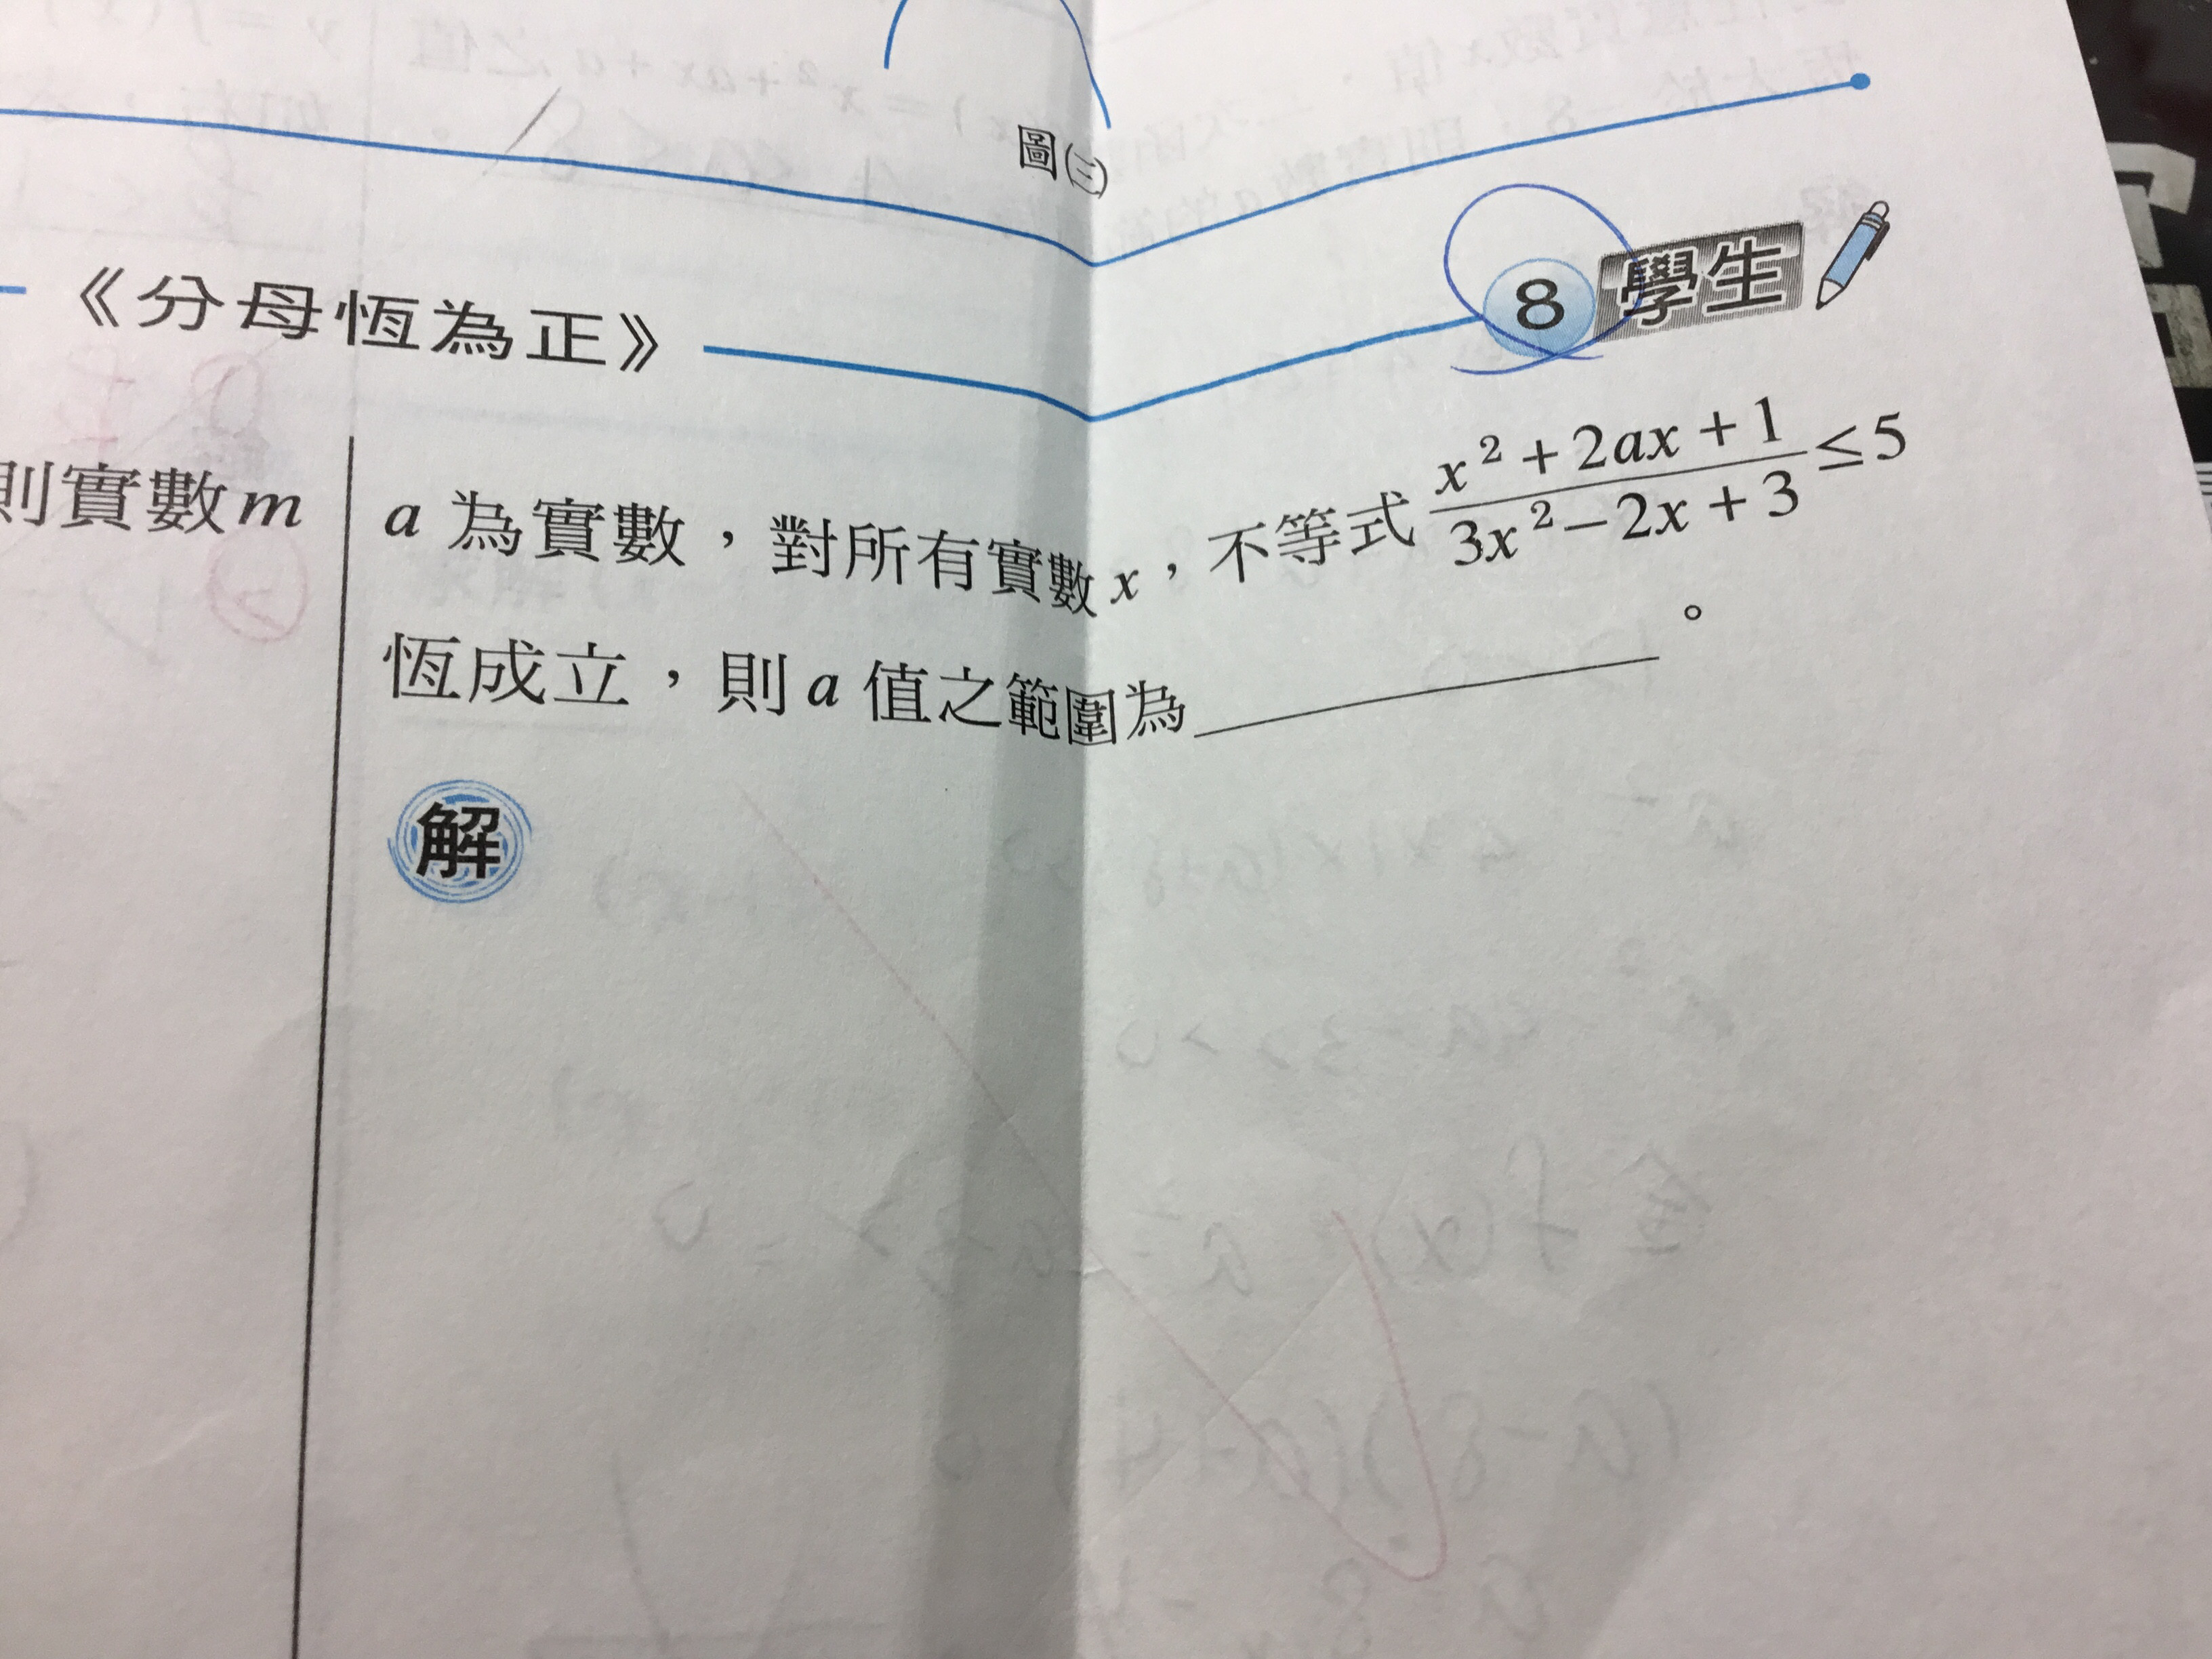 圖(三)
《分母恆為正》
8 學生
則實數m
a 為實數，對所有實數 x，不等式 \frac{x^2+2ax+1}{3x^2-2x+3} ≤ 5
恆成立，則 a 值之範圍為＿＿＿＿＿＿。
解